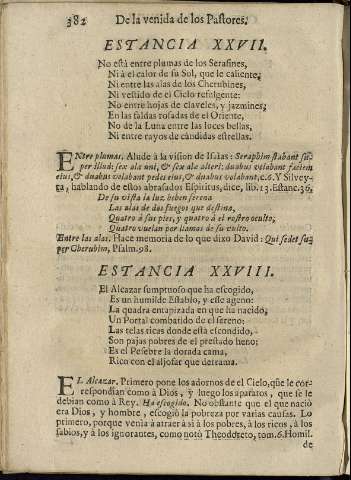 382 De la venida de los Pastores.
ESTANCIA XXVII.
No està entre plumas de los Serafines,
Ni à el calor de su Sol, que le caliente,
Ni entre las alas de los Cherubines,
Ni vestido de el Cielo refulgente:
No entre hojas de claveles, y jazmines,
En las faldas rosadas de el Oriente,
No de la Luna entre las luces bellas,
Ni entre rayos de candidas estrellas.
ENtre plumas. Alude à la vision de Isaias: Seraphim stabant su-
per illud: sex alæ uni, & sex alæ alteri: duabus volabant faciem
eius, & duabus volabant pedes eius, & duabus volabant, c.6. Y Silvey-
ra, hablando de estos abrasados Espiritus, dice, lib.13. Estanc.36.
De su vista la luz beben serena
Las alas de dos fuegos que destina,
Quatro à sus pies, y quatro à el rostro oculto,
Quatro vuelan por llamas de su culto.
Entre las alas. Hace memoria de lo que dixo David: Qui sedet su-
per Cherubim, Psalm.98.
ESTANCIA XXVIII.
El Alcazar sumptuoso que ha escogido,
Es un humilde Establo, y esse ageno:
La quadra entapizada en que ha nacido,
Un Portal combatido de el sereno:
Las telas ricas donde està escondido,
Son pajas pobres de el prestado heno;
Es el Pesebre la dorada cama,
Rico con el aljofar que derrama.
EL Alcazar. Primero pone los adornos de el Cielo, que le cor-
respondian como à Dios, y luego los aparatos, que se le
debian como à Rey. Ha escogido. No obstante que el que naciò
era Dios, y hombre, escogiò la pobreza por varias causas. Lo
primero, porque venia à atraer à si à los pobres, à los ricos, à los
sabios, y à los ignorantes, como notò Theodoreto, tom.6. Homil.
de